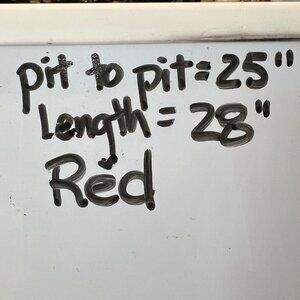 pit to pit = 25"
Length = 28"
Red